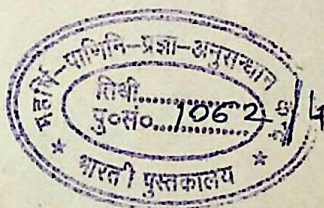 महर्षि-पाणिनि-प्रज्ञा-अनुसन्धान
तिथी..............
पु०सं०..1062
* भारती पुस्तकालय *